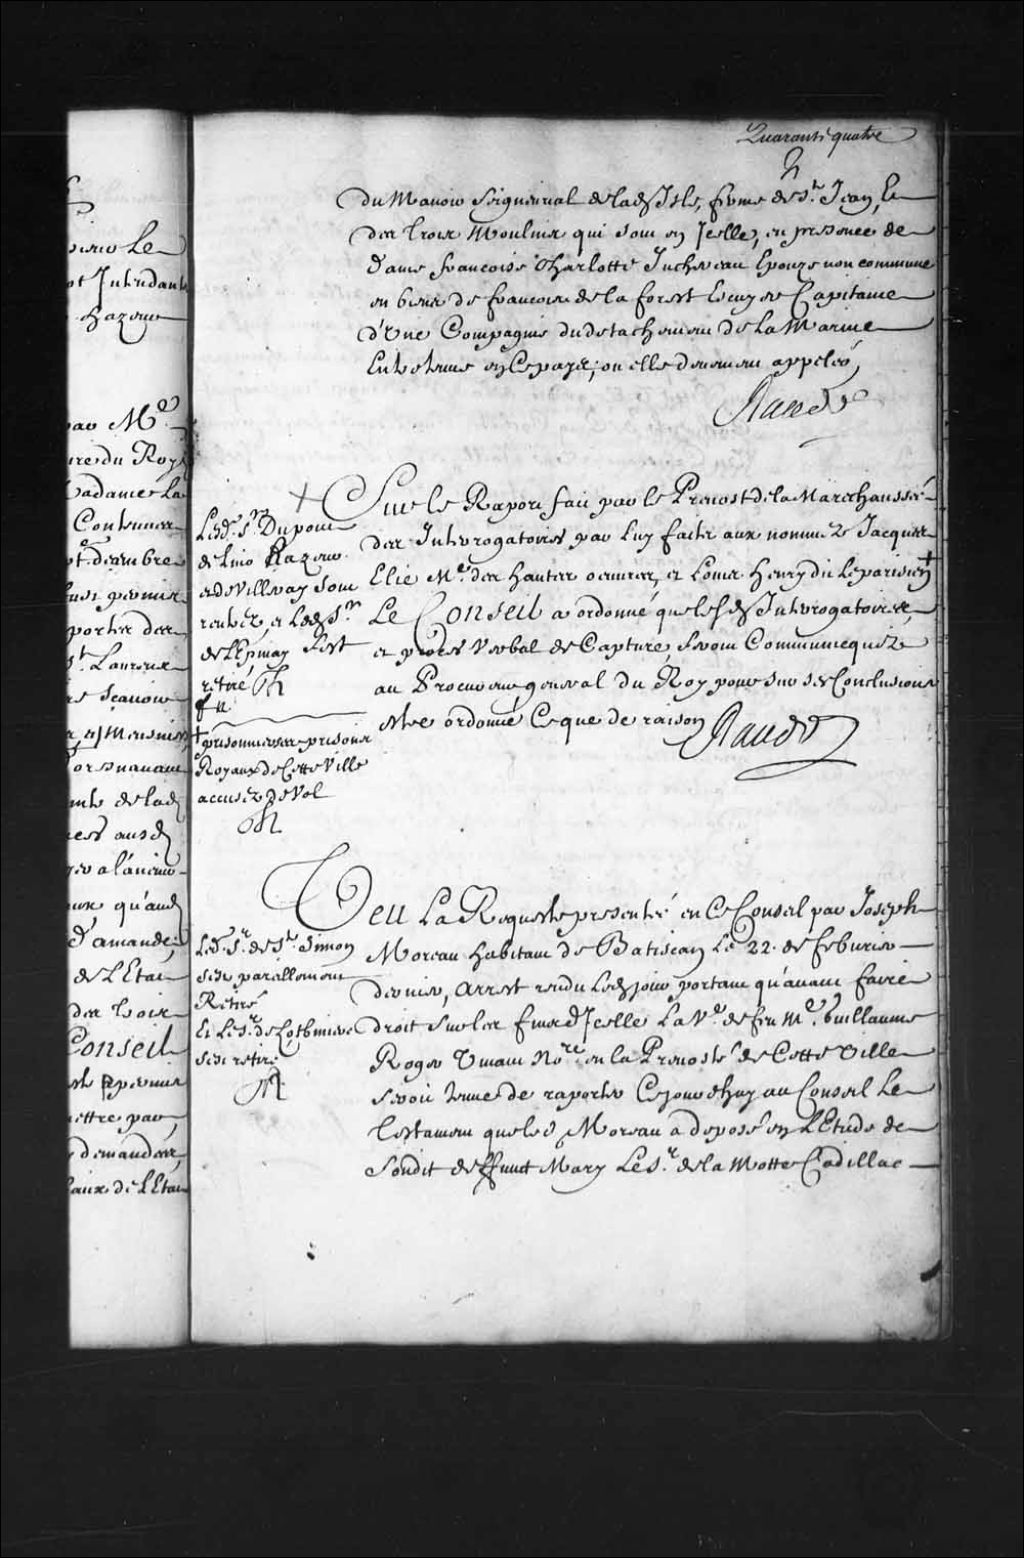 Quarante quatre
du Manoir seigneurial de lad Isle, ferme de St. Jean, Et
des trois Moulins qui sont en Icelle, en presence de
dame francoise Charlotte Juchereau Epouze non commune
en biens de francois de la forest Escuyer Capitaine
d'Une Compagnie du detachement de La Marine
Entretenue en Ce payx, ou elle deuement appelée,
Raudot
+ Sur le Raport fait par le Prevost de la Mareschaussée
des Interrogatoires par Luy faite aux nommez Jacques
Elie Me. des hautes oeuvres, et Louis henry dit Le parisien +
Le Conseil a ordonné que lesd Interrogatoires,
et procès Verbal de Capture, seront Communiquéz
au Procureur general du Roy pour sur ses Conclusions
estre ordonné Ce que de raison Raudot
Lesd. Srs. Dupont
de Lino Hazeur
et de Villeray sont
rentrez, et Led Sr.
de L'Epinay s'est
retiré
+ prisonniers ez prisons
Royaux de Cette Ville
accusez de Vol
Veu La Requeste presentée en Ce Conseil par Joseph
Moreau habitant de Batiscan Le 22. de feburier
dernier, Arrest rendu Led jour portant qu'avant faire
droit sur les fins d'Icelle La Ve. de feu Me. Guillaume
Roger Vivant Nore. en la Prevosté de Cette Ville
seroit tenue de raporter Cejourdhuy au Conseil Le
testament que led Moreau a deposé en L'Etude de
sondit deffunct Mary Le Sr. de la Motte Cadillac
Led. Sr. de St. Simon
s'est pareillement
Retiré
Et Le Sr. de Lotbiniere
s'est retiré
Le
Intendant
hazeur
par Me.
du Roy
Madame La
Contenner
St. Laurens
de lad
qu'aud
d'amande
de L'Etat
des trois
Conseil
mettre par
demander
de L'Etat